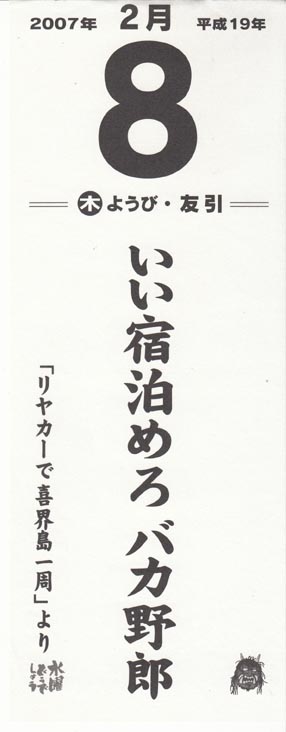 2007年 2月 平成19年
8
木ようび・友引
いい宿泊めろバカ野郎
「リヤカーで喜界島一周」より
水曜
どうで
しょう